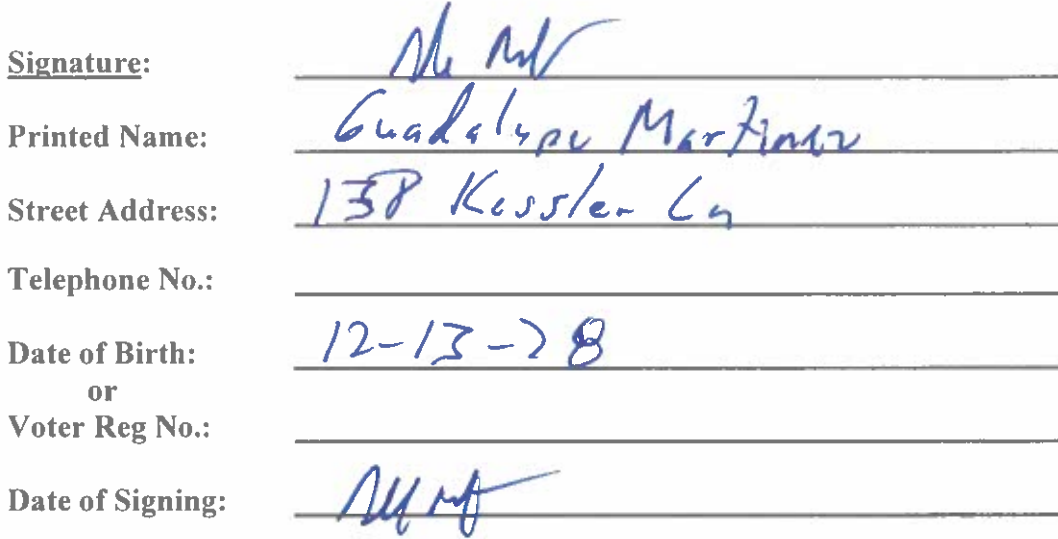 Signature:
Printed Name: Guadalupe Martinez
Street Address: 138 Kessler Ln
Telephone No.:
Date of Birth: 12-13-78
or
Voter Reg No.:
Date of Signing: